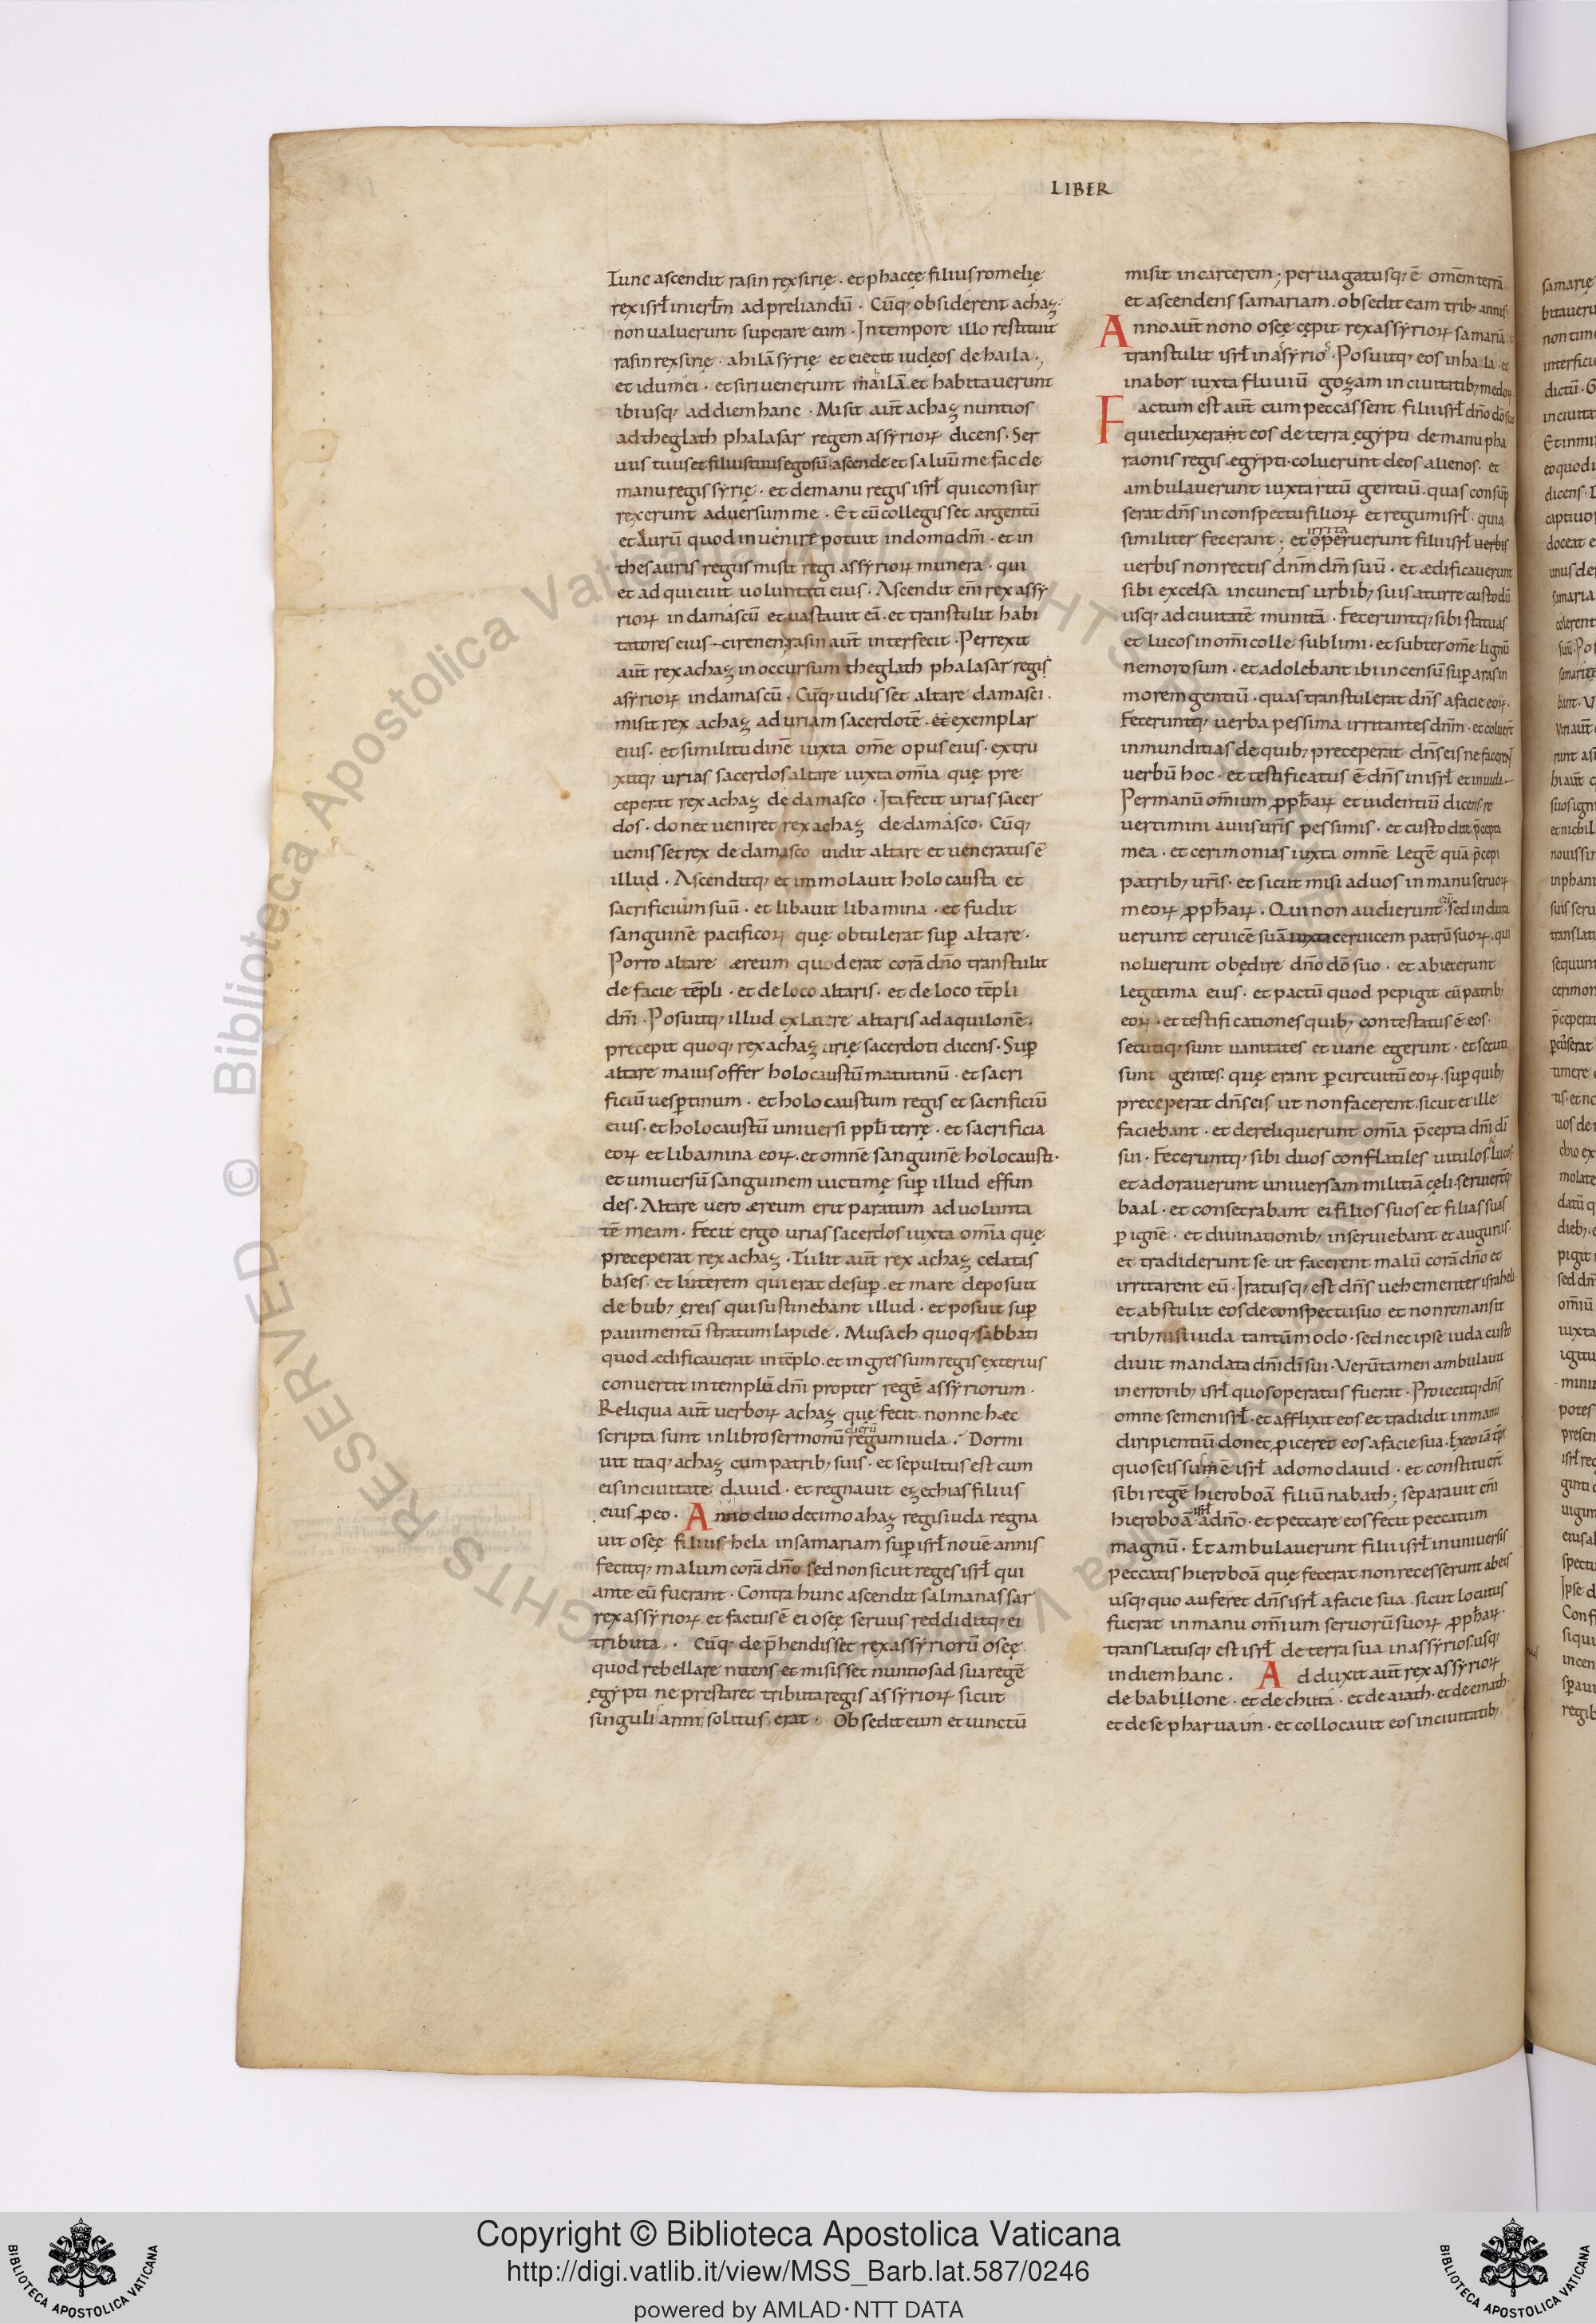 LIBER
Tunc ascendit rasin rex sirię . et phaceę filius romelię
rex isrł inierłm ad preliandū . Cūq; obsiderent achaz .
non valuerunt superare eum . In tempore illo restituit
rasin rex sirię . ahilā syrię et eiecit iudęos de haila .,
et idumei . et siri venerunt in ailā et habitaverunt
ibi usq; ad diem hanc . Misit aūt achaz nuntios
ad theglath phalasar regem assyrioꝝ dicens . Ser
vus tuus et filius tuus ego sū . ascende et saluū me fac de
manu regis syrię . et de manu regis isrł qui consur
rexerunt adversum me . Et cū collegisset argentū
et aurū quod invenire potuit in domo dm̄ . et in
thesauris regiis misit regi assyrioꝝ munera . qui
et adquieuit voluntati eius . Ascendit em̄ rex assy
rioꝝ in damascū et vastavit eā . et transtulit habi
tatores eius cirenen . rasin aūt interfecit . Perrexit
aūt rex achaz in occursum theglath phalasar regis
asyrioꝝ in damascū . Cūq; vidisset altare damasci .
misit rex achaz ad uriam sacerdotē . et exemplar
eius . et similitudinē iuxta om̄e opus eius . extru
xitq; urias sacerdos altare iuxta om̄ia quę pre
ceperat rex achaz de damasco . Ita fecit urias sacer
dos . donec veniret rex achaz de damasco . Cūq;
venisset rex de damasco vidit altare et veneratus ē
illud . Ascenditq; et immolavit holocausta et
sacrificium suū . et libavit libamina . et fudit
sanguinē pacificoꝝ quę obtulerat sup̄ altare .
Porro altare æreum quod erat corā dn̄o transtulit
de facie tēpli . et de loco altaris . et de loco tēpli
dm̄ . Posuitq; illud ex latere altaris ad aquilonē .
precepit quoq; rex achaz urię sacerdoti dicens . Sup̄
altare maius offer holocaustū matutinū . et sacri
ficiū vesp̄tinum . et holocaustum regis et sacrificiū
eius . et holocaustū universi pplī terrę . et sacrificia
eoꝝ et libamina eoꝝ . et omnē sanguinē holocausti .
et universū sanguinem victimę sup̄ illud effun
des . Altare vero æreum erit paratum ad volunta
tē meam . Fecit ergo urias sacerdos iuxta om̄ia quę
preceperat rex achaz . Tulit aūt rex achaz celatas
bases . et luterem qui erat desup̄ . et mare deposuit
de bub; ęreis qui sustinebant illud . et posuit sup̄
pavimentū stratum lapide . Musach quoq; sabbati
quod ædificaverat in tēplo . et ingressum regis exterius
convertit in templū dm̄ propter regē assyriorum .
Reliqua aūt verboꝝ achaz quę fecit . nonne hæc
scripta sunt in libro sermonū dierū regum iuda . Dormi
vit itaq; achaz cum patrib; suis . et sepultus est cum
eis in civitate david . et regnavit ezechias filius
eius p eo . Anno duodecimo ahaz regis iuda regna
vit oseę filius hela in samariam sup isrł novē annis
fecitq; malum corā dn̄o sed non sicut reges isrł qui
ante eū fuerant . Contra hunc ascendit salmanassar
rex assyrioꝝ . et factus ē ei oseę servus reddiditq; ei
tributa . Cūq; dep̄hendisset rex assyriorū oseę
quod rebellare nitens et misisset nuntios ad sua regē
ęgypti ne prestaret tributa regis assyrioꝝ sicut
singuli anni solitus erat . Obsedit eum et vinctū
misit in carcerem ; pervagatusq; ē omēm terrā
et ascendens samariam . obsedit eam trib; annis
Anno aūt nono oseę cępit rex assyrioꝝ samariā
transtulit isrł in asyrios . Posuitq; eos in haila et
in abor iuxta fluviū gozam in civitatib; medoꝝ
Factum est aūt cum peccassent filii isrł dn̄o dō suo
qui eduxerant eos de terra ęgypti de manu pha
raonis regis ægypti . coluerunt deos alienos . et
ambulaverunt iuxta ritū gentiū . quas consūp
serat dn̄s in conspectu filioꝝ et regum isrł . quia
similiter fecerant ; et irrita operuerunt filii isrł verbis
verbis non rectis dn̄m dm̄ suū . et ædificaverunt
sibi excelsa in cunctis urbib; suis a turre custodū
usq; ad civitatē munitā . Feceruntq; sibi statuas
et lucos in om̄i colle sublimi . et subter om̄e lignū
nemorosum . et adolebant ibi incensū sup aras in
morem gentiū . quas transtulerat dn̄s a facie eoꝝ .
Feceruntq; verba pessima irritantes dn̄m . et coluert̄
inmunditias de quib; preceperat dn̄s eis ne facerent
verbū hoc . et testificatus ē dn̄s in isrł et in iuda
Per manū om̄ium pph̄aꝝ et videntiū dicens . re
vertimini a viis ur̄is pessimis . et custodite p̄cepta
mea . et cerimonias iuxta omnē legē quā p̄cepi
patrib; ur̄is . et sicut misi ad vos in manu servoꝝ
meoꝝ pph̄aꝝ . Qui non audierunt sed indura
verunt cervicē suā iuxta cervicem patrū suoꝝ . qui
noluerunt obędire dn̄o dō suo . et abiecerunt
legitima eius . et pactū quod pepigit cū patrib;
eoꝝ . et testificationes quib; contestatus ē eos
secutiq; sunt vanitates et vane egerunt . et secuti
sunt gentes . quę erant p circuitū eoꝝ . sup quib;
preceperat dn̄s eis ut non facerent . sicut et ille
faciebant . et dereliquerunt om̄ia p̄cepta dn̄i dī
sui . Feceruntq; sibi duos conflatiles vitulos & lucos
et adoraverunt universam militiā cęli . serviert̄q;
baal . et consecrabant ei filios suos et filias suas
p ignē . et divinationib; inserviebant et auguriis .
et tradiderunt se ut facerent malū corā dn̄o et
irritarent eū . Iratusq; est dn̄s vehementer israheli
et abstulit eos de conspectu suo et non remansit
trib; nisi iuda tantūmodo . sed nec ipse iuda custo
divit mandata dn̄i dī sui . Verūtamen ambulavit
in errorib; isrł quos operatus fuerat . Proiecitq; dn̄s
omne semen isrł . et afflixit eos . et tradidit in manu
diripientiū donec piceret eos a facie sua . Ex eo iā tp̄r
quo scissum ē isrł a domo david . et constituert̄
sibi regē hieroboā filiū nabath ; separavit em̄
hieroboā isrł a dn̄o . et peccare eos fecit peccatum
magnū . Et ambulaverunt filii isrł in universis
peccatis hieroboā quę fecerat non recesserunt ab eis
usq; quo auferet dn̄s isrł a facie sua . sicut locutus
fuerat in manu om̄ium servorū suoꝝ pph̄aꝝ .
translatusq; est isrł de terra sua in assyrios . usq;
in diem hanc . Adduxit aūt rex assyrioꝝ
de babillone . et de chuta . et de aiath . et de emath .
et de sepharvaim . et collocavit eos in civitatib;
Copyright © Biblioteca Apostolica Vaticana
http://digi.vatlib.it/view/MSS_Barb.lat.587/0246
powered by AMLAD·NTT DATA